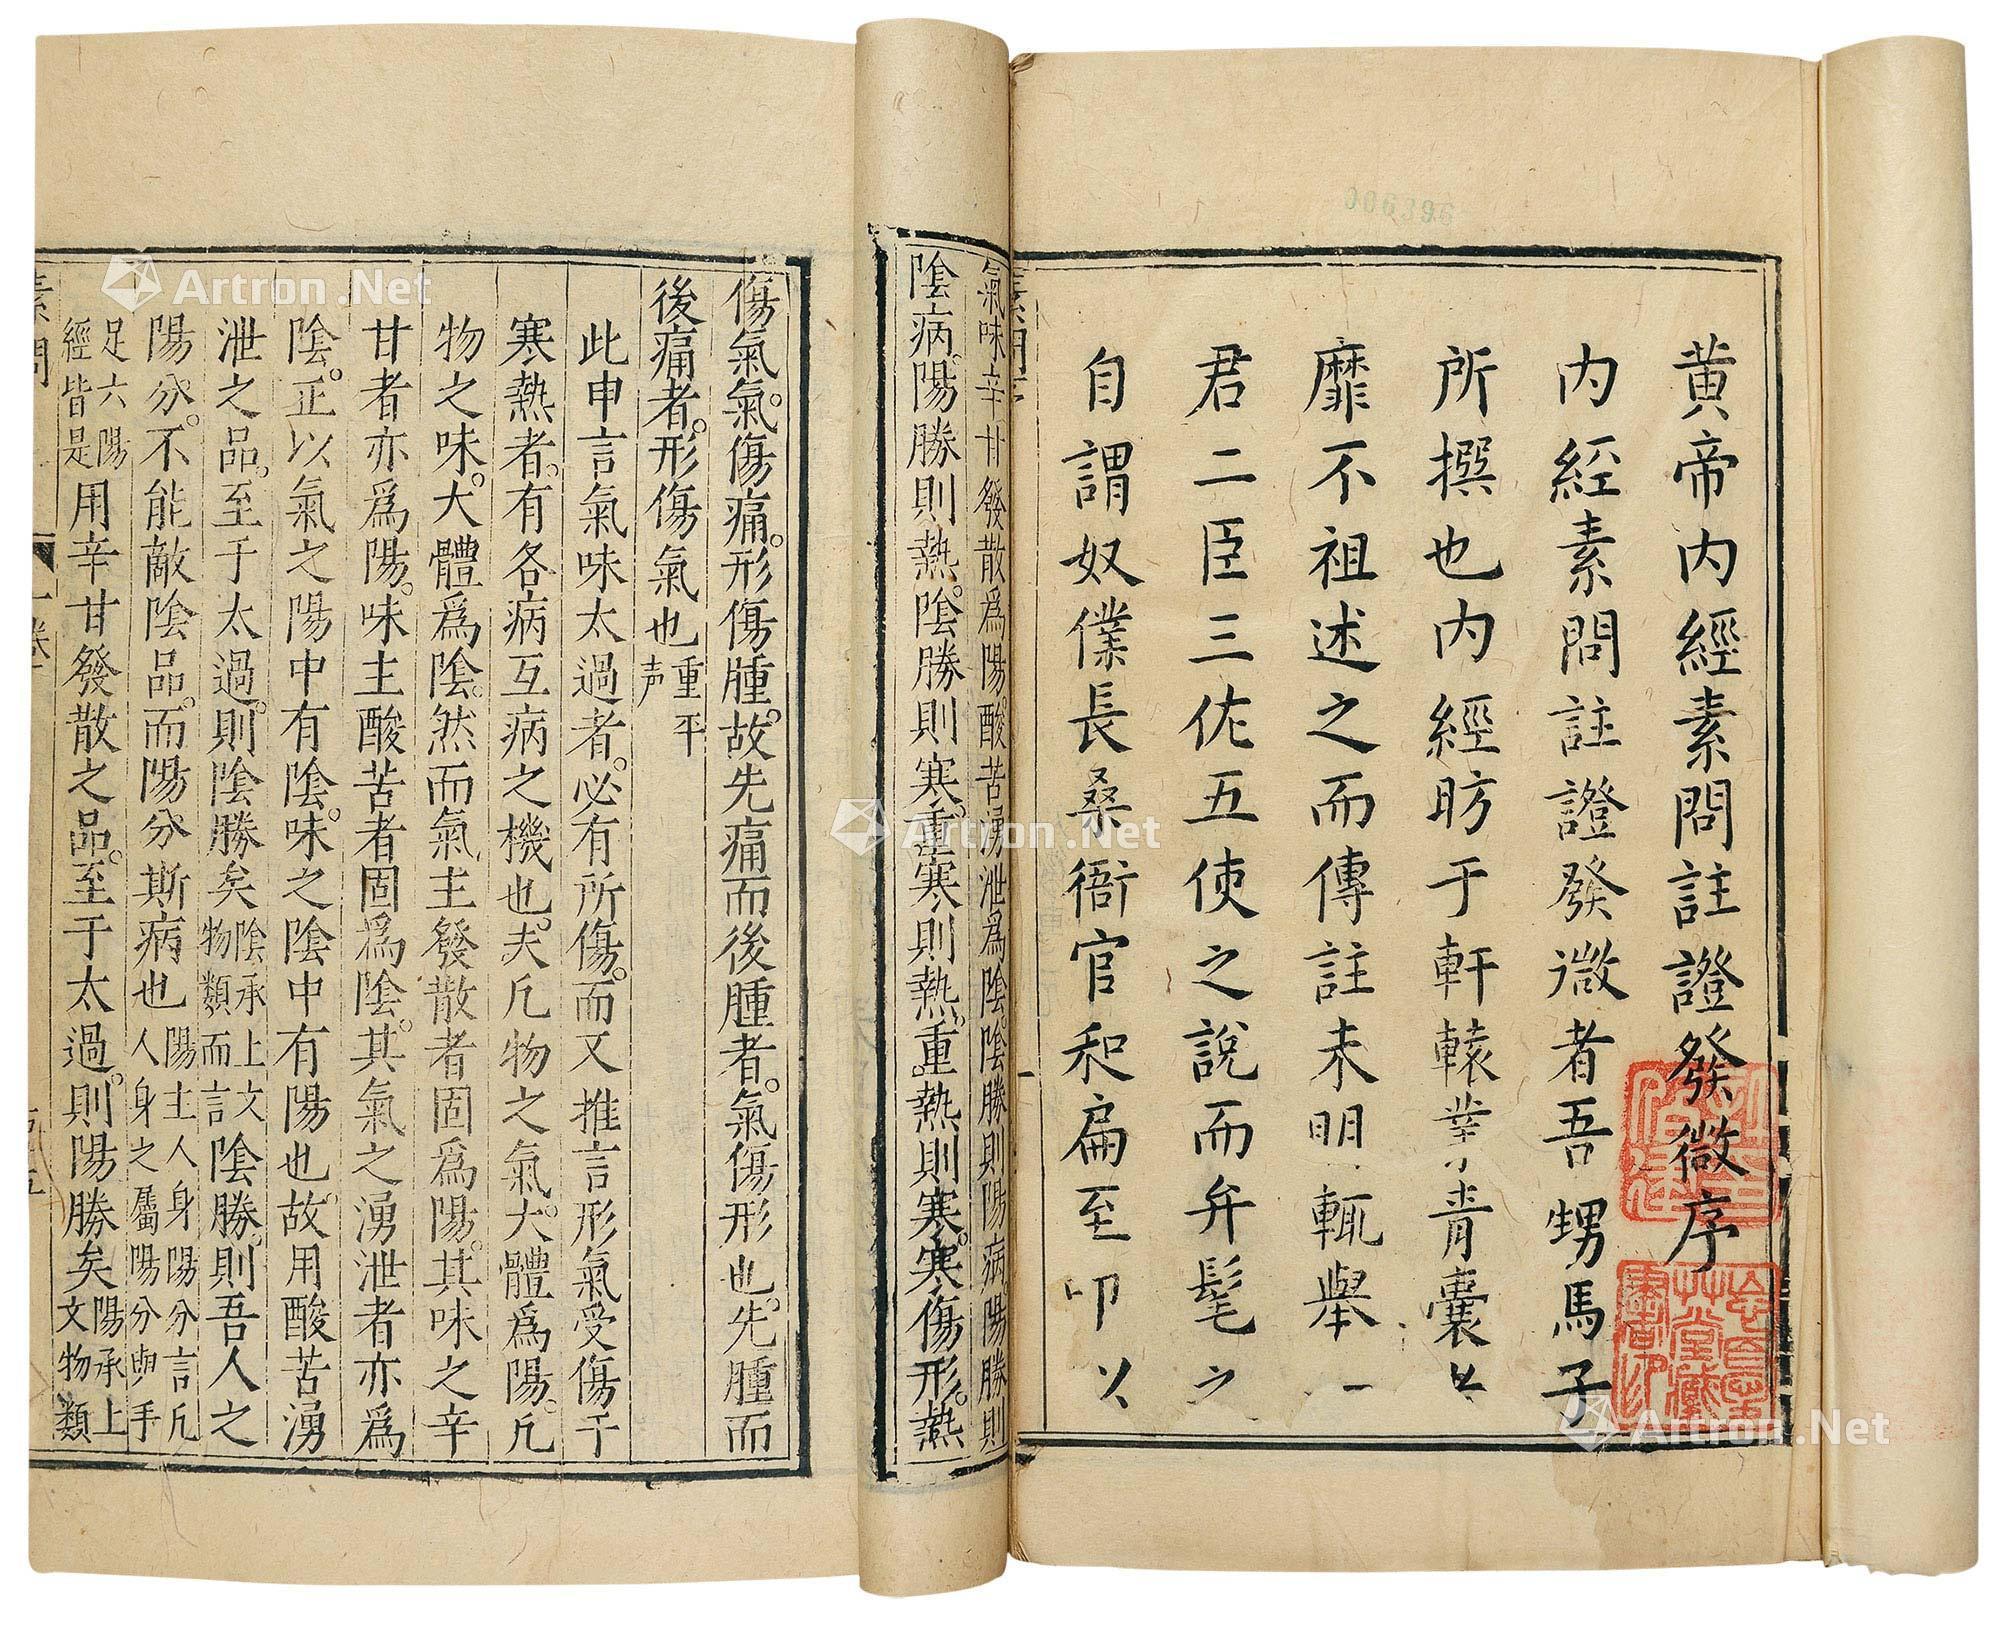 黄帝内經素問註證發微序
内經素問註證發微者吾甥馬子
所撰也内經昉于軒轅業青囊以
靡不祖述之而傳註未明輒舉一
君二臣三佐五使之說而弁髦之
自謂奴僕長桑衙官和扁至叩以
006396
氣味辛甘發散爲陽酸苦湧泄爲陰陰勝則陽病陽勝則
陰病。陽勝則熱。陰勝則寒。重寒則熱。重熱則寒。寒傷形。熱
傷氣。氣傷痛。形傷腫。故先痛而後腫者。氣傷形也。先腫而
後痛者。形傷氣也重平声
此申言氣味太過者。必有所傷。而又推言形氣受傷于
寒熱者。有各病互病之機也。夫凡物之氣。大體爲陽。凡
物之味。大體爲陰。然而氣主發散者固爲陽。其味之辛
甘者亦爲陽。味主酸苦者固爲陰。其氣之湧泄者亦爲
陰。正以氣之陽中有陰。味之陰中有陽也。故用酸苦湧
泄之品。至于太過。則陰勝矣陰承上文物類而言陰勝。則吾人之
陽分。不能敵陰品。而陽分斯病也陽主人身陽分言凡人身之屬陽分與手
足六陽經皆是用辛甘發散之品。至于太過。則陽勝矣陽承上文物類
素問
Artron.Net
Artron.Net
Artron.Net